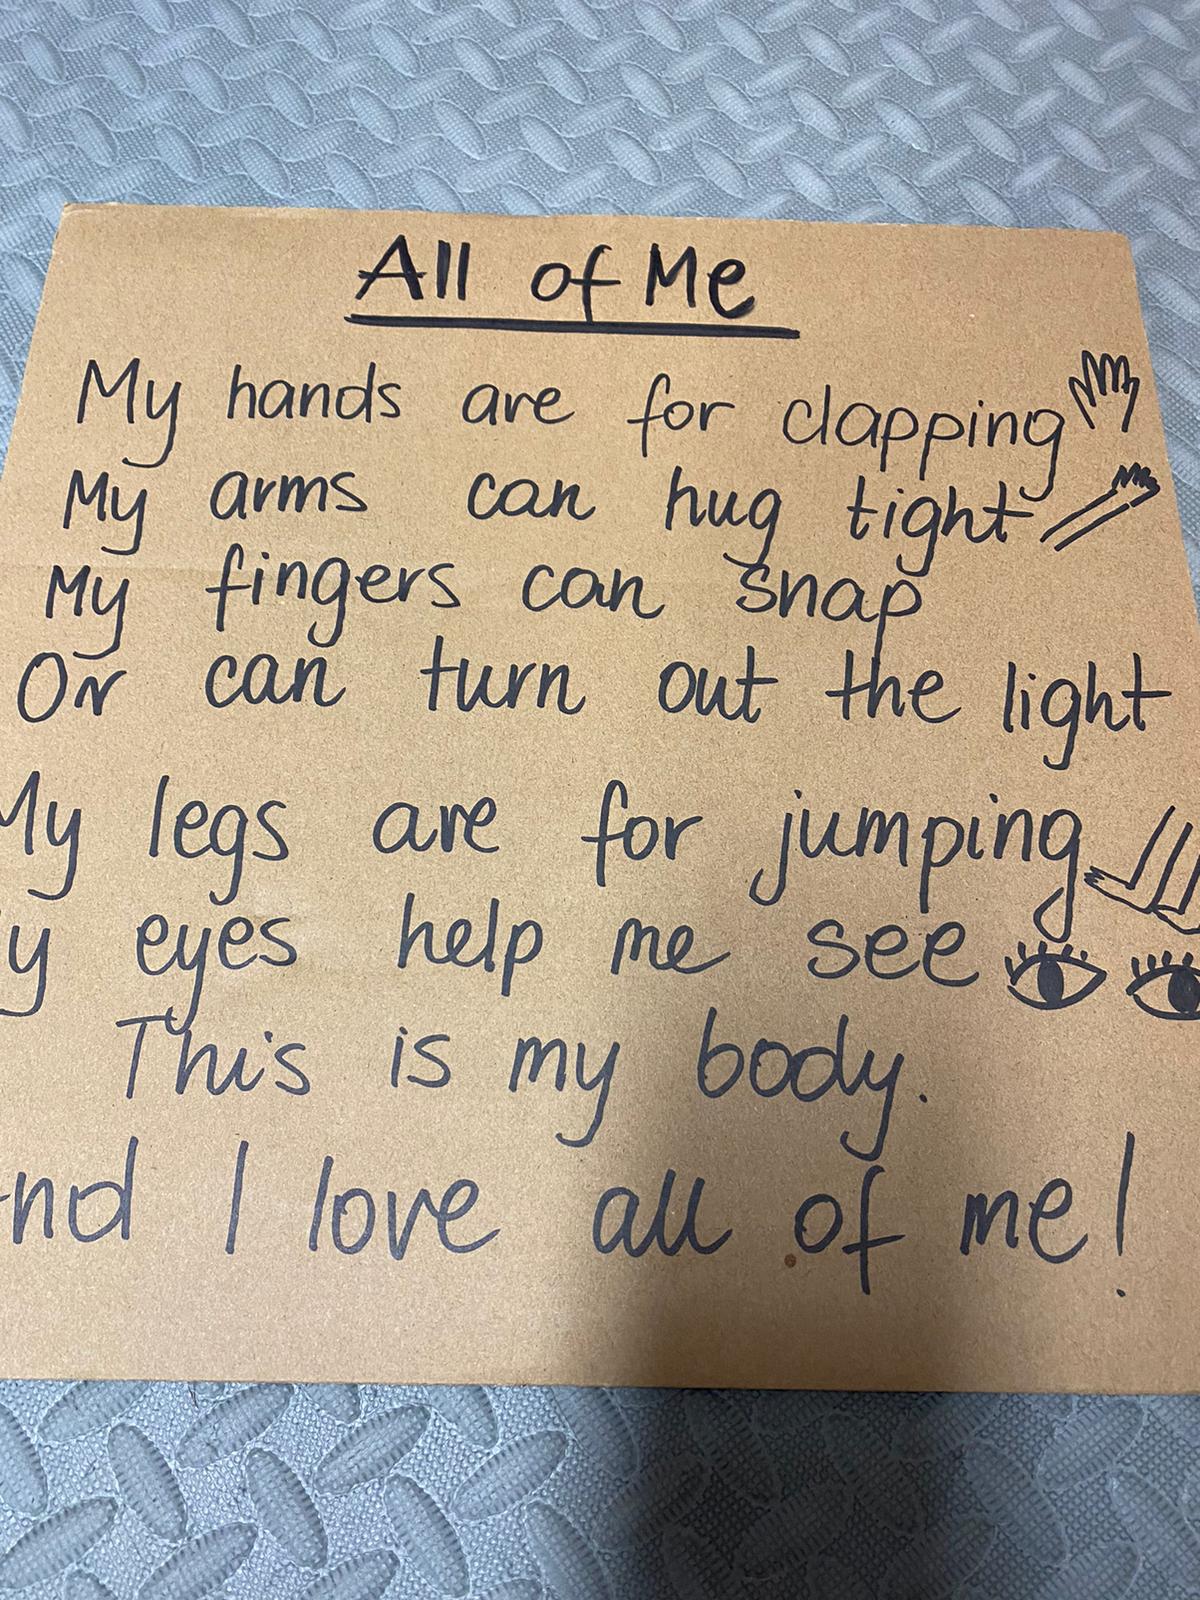 All of Me
My hands are for clapping
My arms can hug tight
My fingers can snap
Or can turn out the light
My legs are for jumping
My eyes help me see
This is my body.
And I love all of me!